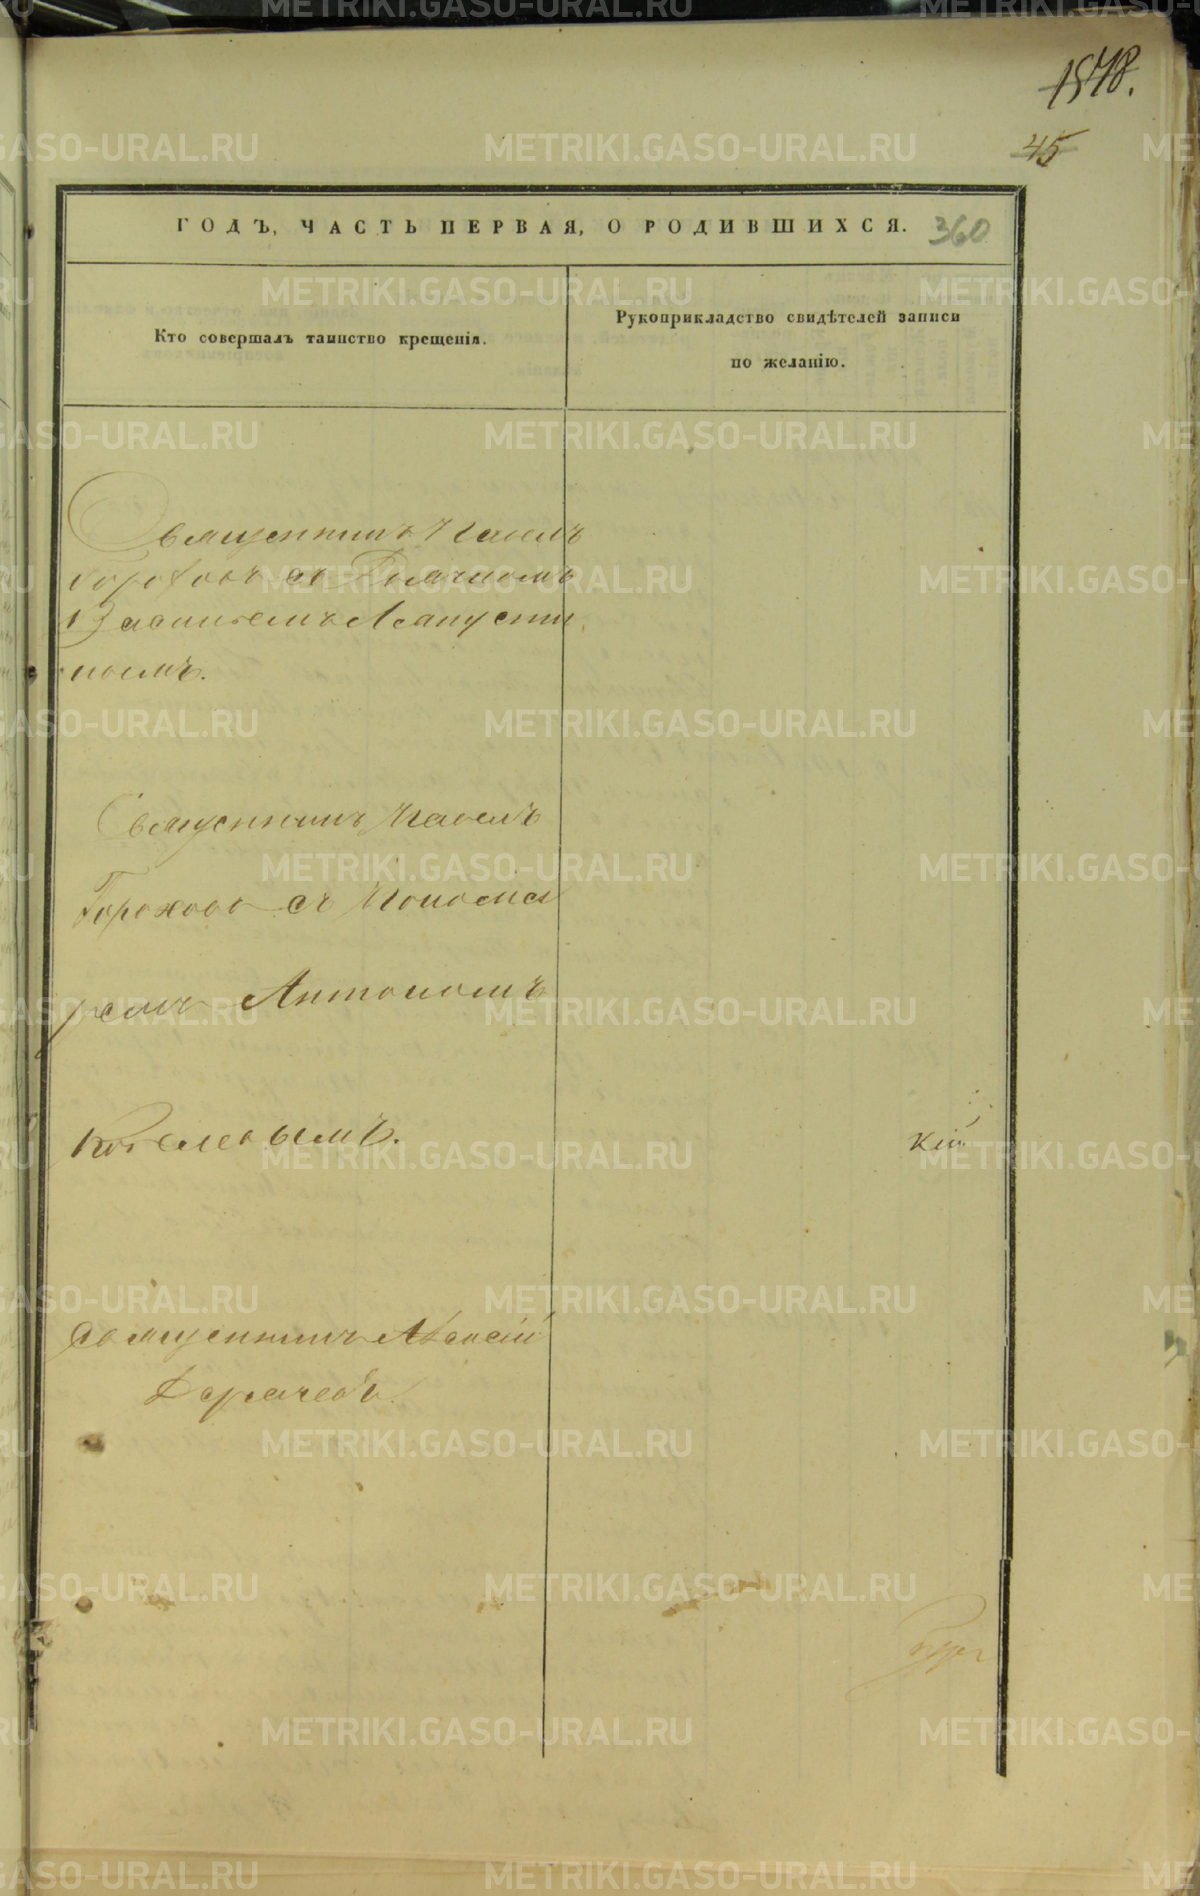 1578.
45
ГОДЪ, ЧАСТЬ ПЕРВАЯ, О РОДИВШИХСЯ. 360
Кто совершалъ таинство крещенія.
Рукоприкладство свидѣтелей записи
по желанію.
Священникъ Павелъ
Гороховъ съ Дьячкомъ
Василіемъ Лапусти
нымъ.
Священникъ Павелъ
Гороховъ съ Понома
ремъ Антономъ
Священникъ Алексій
Дерачевъ
кій